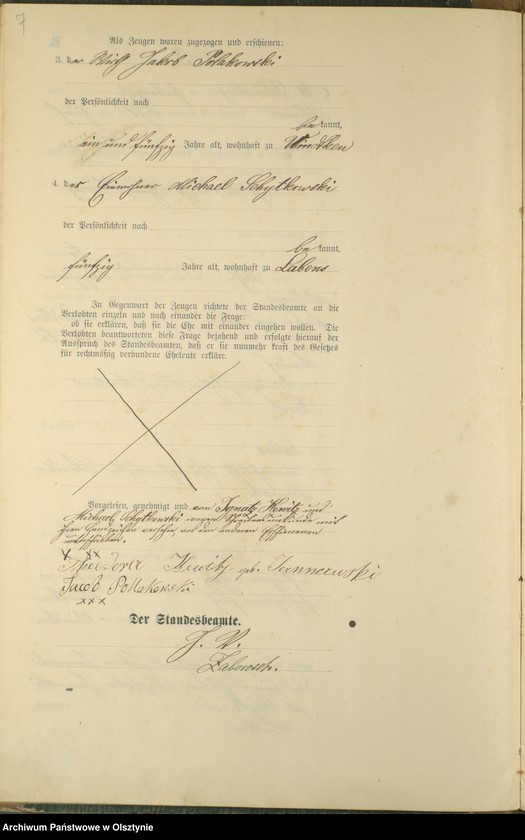 7
Als Zeugen waren zugezogen und erschienen:
3. der Wirth Jakob Polakowski
der Persönlichkeit nach
be kannt,
ein und fünfzig Jahre alt, wohnhaft zu Windken
4. der Einwohner Michael Schytkowski
der Persönlichkeit nach
be kannt,
fünfzig Jahre alt, wohnhaft zu Labens
In Gegenwart der Zeugen richtete der Standesbeamte an die
Verlobten einzeln und nach einander die Frage:
ob sie erklären, daß sie die Ehe mit einander eingehen wollen. Die
Verlobten beantworteten diese Frage bejahend und erfolgte hierauf der
Ausspruch des Standesbeamten, daß er sie nunmehr kraft des Gesetzes
für rechtmäßig verbundene Eheleute erkläre.
Vorgelesen, genehmigt und von Ignatz Hewitz und
Michael Schytkowski wegen Schreibensunkunde mit
ihren Handzeichen versehen, von den anderen Erschienenen
unterschrieben.
X XX
Theodora Hewitz geb.
Jacob Pollakowski
XXX
Der Standesbeamte.
J. V.
Archiwum Państwowe w Olsztynie